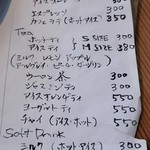 エスプレッソ 300
カフェラテ (ホット・アイス) 350
Tea
ホットティー S SIZE 300
アイスティー M SIZE 380
(ミルク レモン アップル
アールグレイ・ピーチ・ダージリン)
ウーロン茶 300
ジャスミンティ 300
アイスオレンジティ 550
ヨーグルトティ 550
チャイ (アイス・ホット) 550
Soft Drink
ミルク (ホット・アイス) 300